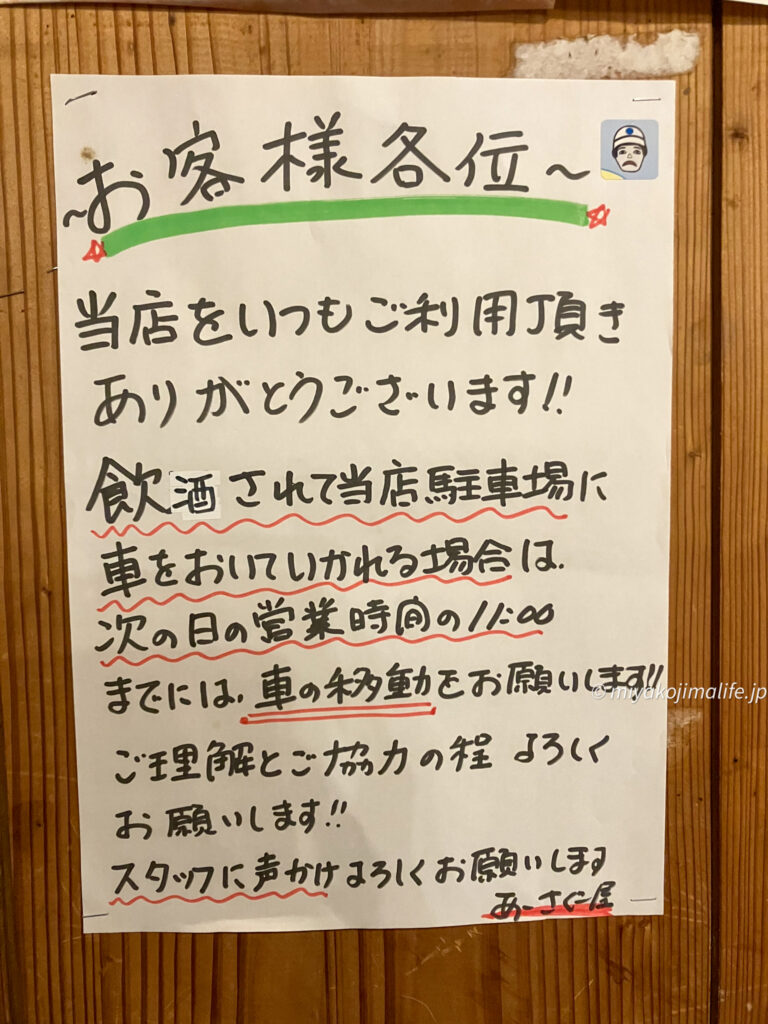 ~お客様各位~
当店をいつもご利用頂き
ありがとうございます!!
飲酒されて当店駐車場に
車をおいていかれる場合は、
次の日の営業時間の11:00
までには、車の移動をお願いします!!
ご理解とご協力の程 よろしく
お願いします!!
スタッフに声かけよろしくお願いします
あーさぐー屋
© miyakojimalife.jp